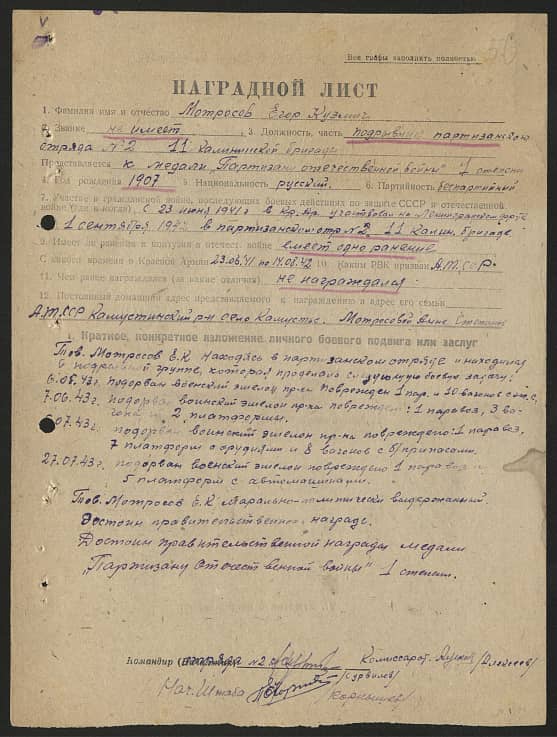 Все графы заполнять полностью
56
НАГРАДНОЙ ЛИСТ
1. Фамилия имя и отчество Мотросов Егор Кузмич
2. Звание не имеет 3. Должность, часть подрывник партизанского
отряда №2 11 Калининской бригады
Представляется к медали „Партизану отечественной войны" 1 степени
4. Год рождения 1907 5. Национальность русский. 6. Партийность беспартийный
7. Участие в гражданской войне, последующих боевых действиях по защите СССР и отечественной
войне (где и когда) С 23 июня 1941 г в Кр. Ар. участвовал на Ленинградском фронте
1 сентября в партизанском отр №2. 11 Калин. бригаде.
9. Имеет ли ранения и контузии в отечест. войне имеет одно ранение
С какого времени в Красной Армии 23.06.41 по 10. Каким РВК призван
11. Чем ранее награждался (за какие отличия) не награждался
12. Постоянный домашний адрес представляемого к награждению и адрес его семьи
А.Т.ССР р-н село Мотросовой Анне
1. Краткое, конкретное изложение личного боевого подвига или заслуг
Тов. Мотросов Е.К находясь в партизанском отряде и находился
в подрывной группе, которая проделала следующую боевую задачу:
6.05.43 г. подорван воинский эшелон пр-ка поврежден 1 пар. и 10 вагонов
7.06.43 г. подорван воинский эшелон пр-ка поврежден: 1 паровоз, 3 ва-
гона и 2 платформы.
07.43 г. подорван воинский эшелон пр-ка повреждено: 1 паровоз,
7 платформ с орудиями и 8 вагонов с б/припасами.
27.07.43 г. подорван военский эшелон повреждено 1 паровоз и
5 платформ с автомашинами.
Тов. Мотросов Е.К морально-политически выдержанный.
Достоин правительственной награде.
Достоин правительственной награды медали
„Партизану Отечественной войны" 1 степени.
Командир отряда №2 Комиссар от. /Алексеев/
Нач. Штаба